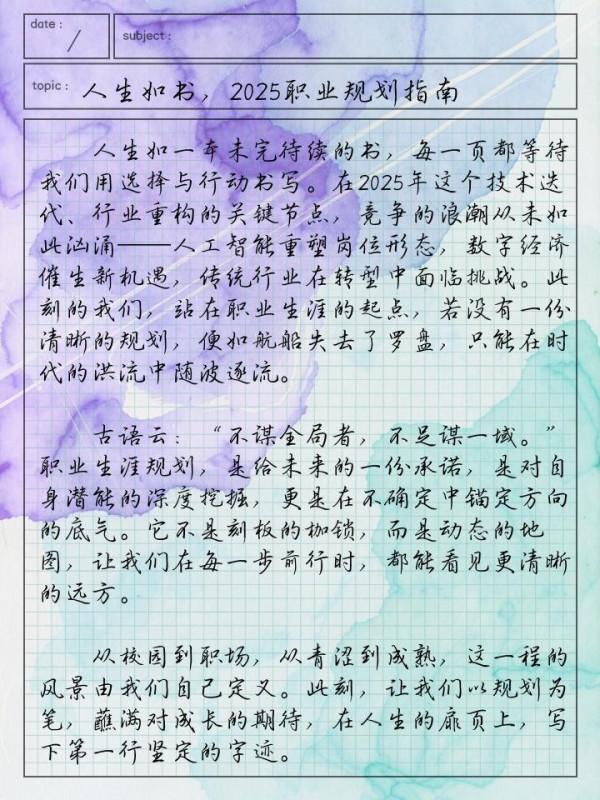 date :
/
subject :
topic : 人生如书，2025职业规划指南
人生如一本未完待续的书，每一页都等待
我们用选择与行动书写。在2025年这个技术迭
代、行业重构的关键节点，竞争的浪潮从未如
此汹涌——人工智能重塑岗位形态，数字经济
催生新机遇，传统行业在转型中面临挑战。此
刻的我们，站在职业生涯的起点，若没有一份
清晰的规划，便如航船失去了罗盘，只能在时
代的洪流中随波逐流。
古语云：“不谋全局者，不足谋一域。”
职业生涯规划，是给未来的一份承诺，是对自
身潜能的深度挖掘，更是在不确定中锚定方向
的底气。它不是刻板的枷锁，而是动态的地
图，让我们在每一步前行时，都能看见更清晰
的远方。
从校园到职场，从青涩到成熟，这一程的
风景由我们自己定义。此刻，让我们以规划为
笔，蘸满对成长的期待，在人生的扉页上，写
下第一行坚定的字迹。